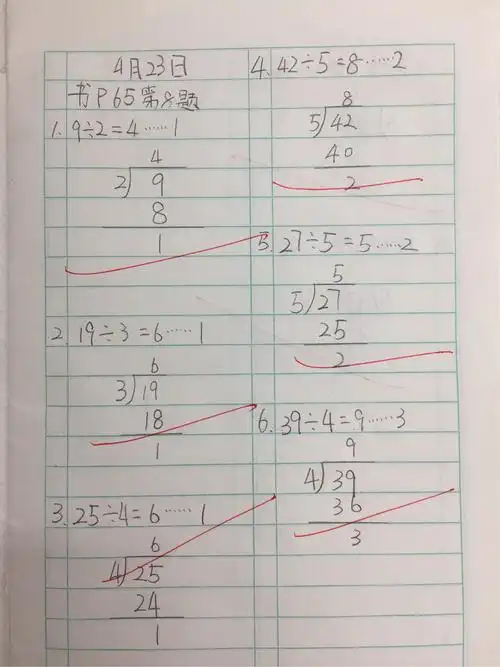 4月23日
书P65第8题
1. 9÷2=4……1
4
2 9
8
1
2. 19÷3=6……1
6
3 19
18
1
3. 25÷4=6……1
6
4 25
24
1
4. 42÷5=8……2
8
5 42
40
2
5. 27÷5=5……2
5
5 27
25
2
6. 39÷4=9……3
9
4 39
36
3